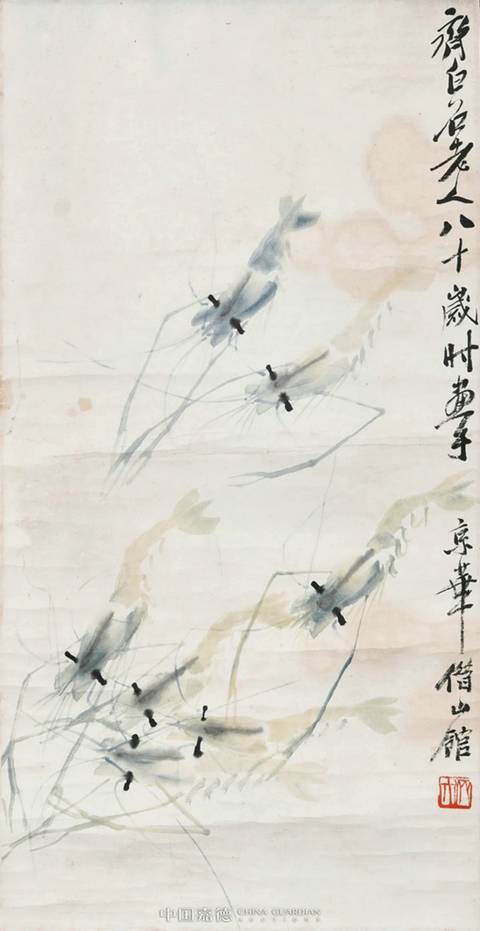 齊白石老人八十歲時畫于京華借山館
中国嘉德 CHINA GUARDIAN
AUCTIONS